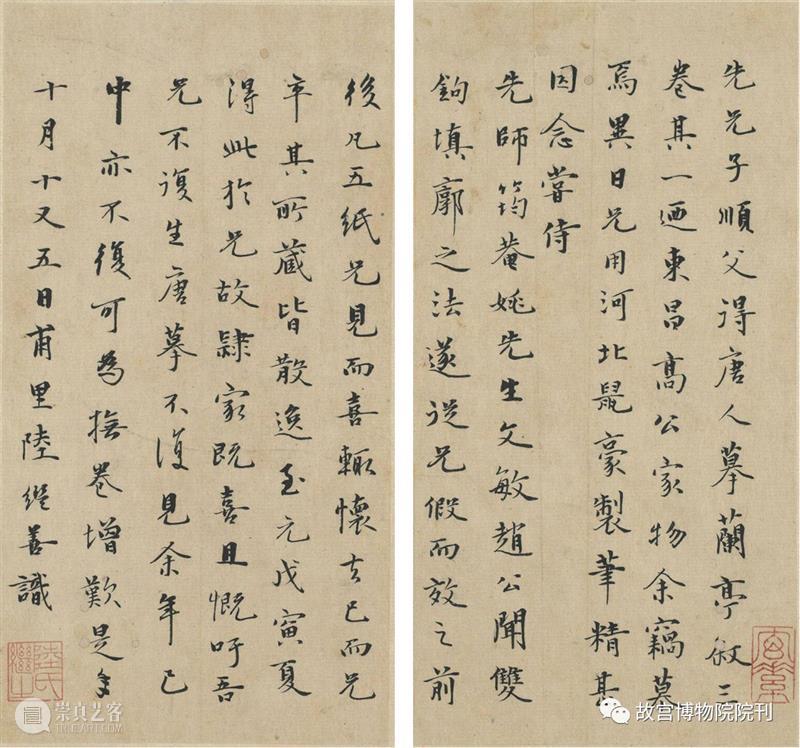 先兄子順父得唐人摹蘭亭叙三
卷其一迺東昌高公家物余竊慕
焉異日兄用河北鼠豪製筆精甚
因念嘗侍
先師筠菴姚先生文敏趙公聞雙
鉤填廓之法遂從兄假而效之前
後凡五紙兄見而喜輒懷去已而兄
卒其所藏皆散逸至元戊寅夏
得此於兄故隷家既喜且慨吁吾
兄不復生唐摹不復見余年已
中亦不復可為撫卷增歎是年
十月十又五日甫里陸繼善識
陸氏
繼善
崇真艺客
故宫博物院院刊